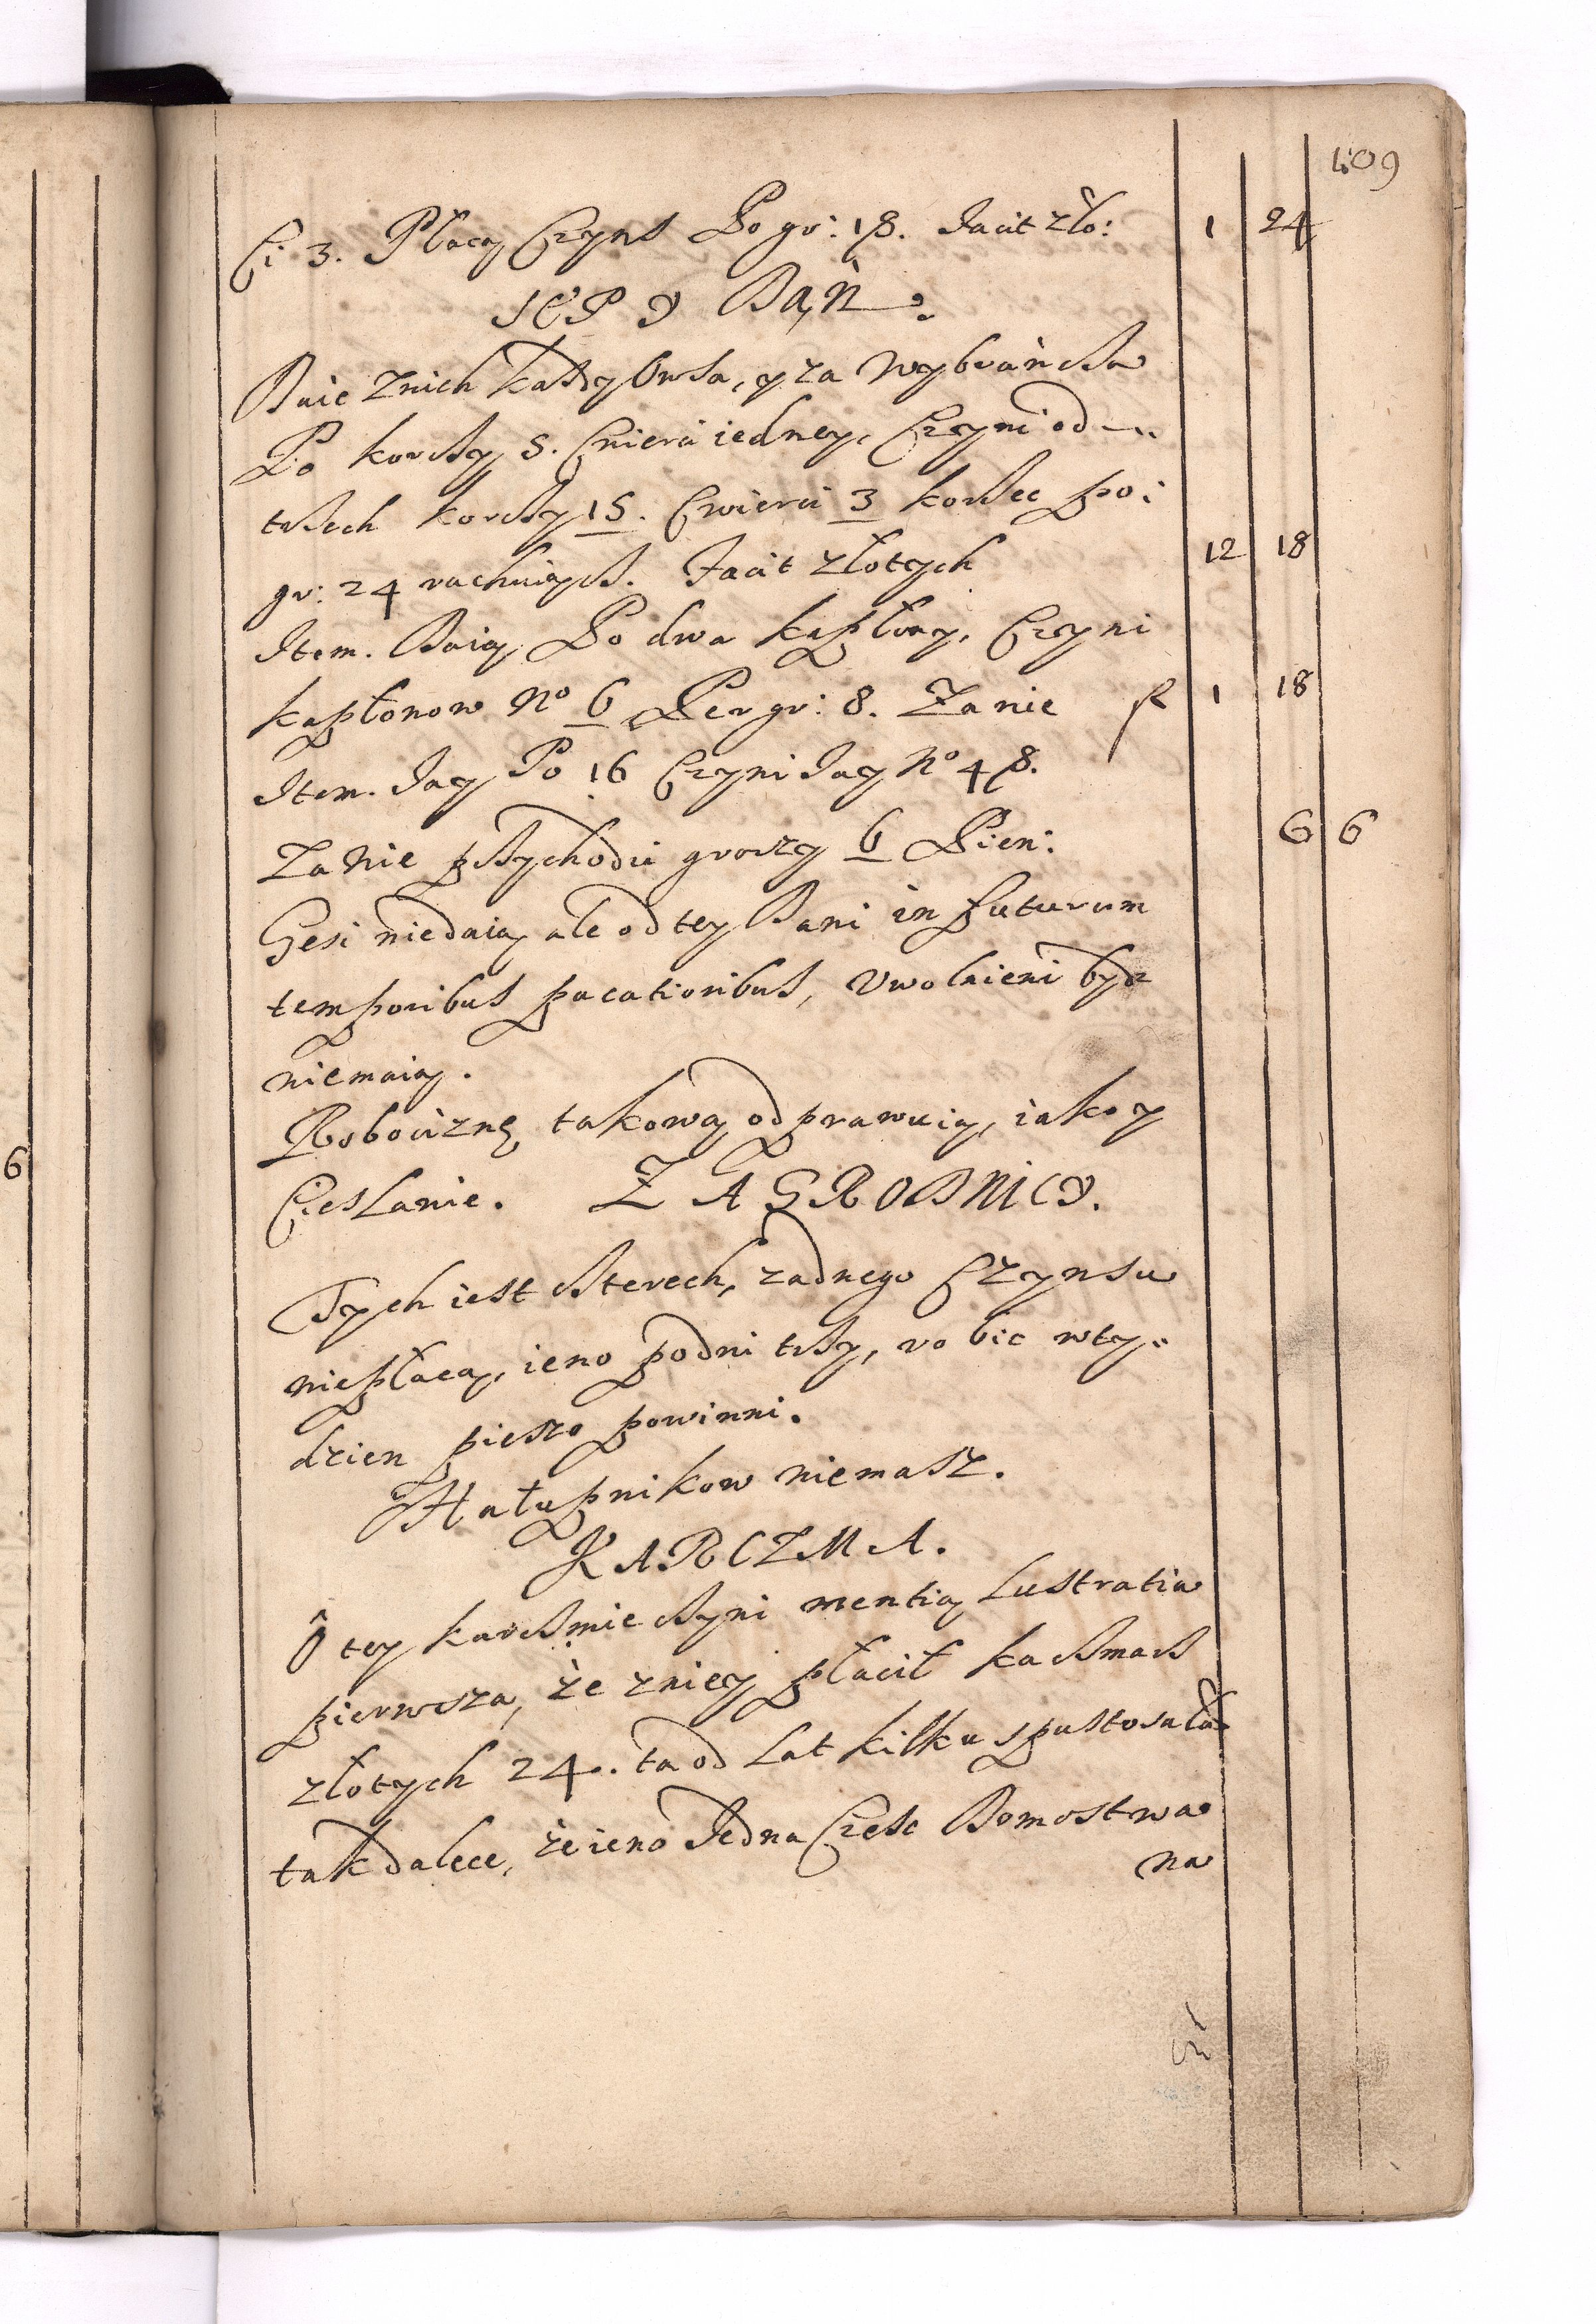 409
Ci 3. Płacą Czyns Po gr: 18. Facit zło: 1 24
SEP Y DAŃ.
Daie znich każdy Owsa, y za wybrańcka
Po korcży 5. Cwierci iedney, Czyni od
trżech korcży 15. Cwierci 3 korżec po:
gr: 24 rachuiącż. Facit złotych 12 18
Item. Daią Po dwa kapłony, Czyni
kapłonow No 6 Per gr: 8. Za nie f 1 18
Item. Jay Po 16 Czyni Jay No 48.
Za nie pżychodzi groszy 6 Pien: 6 6
Gęsi niedaią ale od tey Dani in futurum
temporibus pacatioribus, Uwolnieni bydz
niemaią.
Robociznę takową odprawuią, iako y
Cieslanie. ZAGRODNICY.
Tych iest cżterech, zadnego Czynsu
niepłacą, ieno podni trży, robic wty:
dzien pieszo powinni.
Hałupnikow niemasz.
KARCZMA.
O tey karcżmie cżyni mentią Lustratia
pierwsza, że zniey płacił kacżmarż
złotych 24. ta od Lat kilku spustosała
tak dalece, że ieno Jedna Częsc Domostwa
na
6